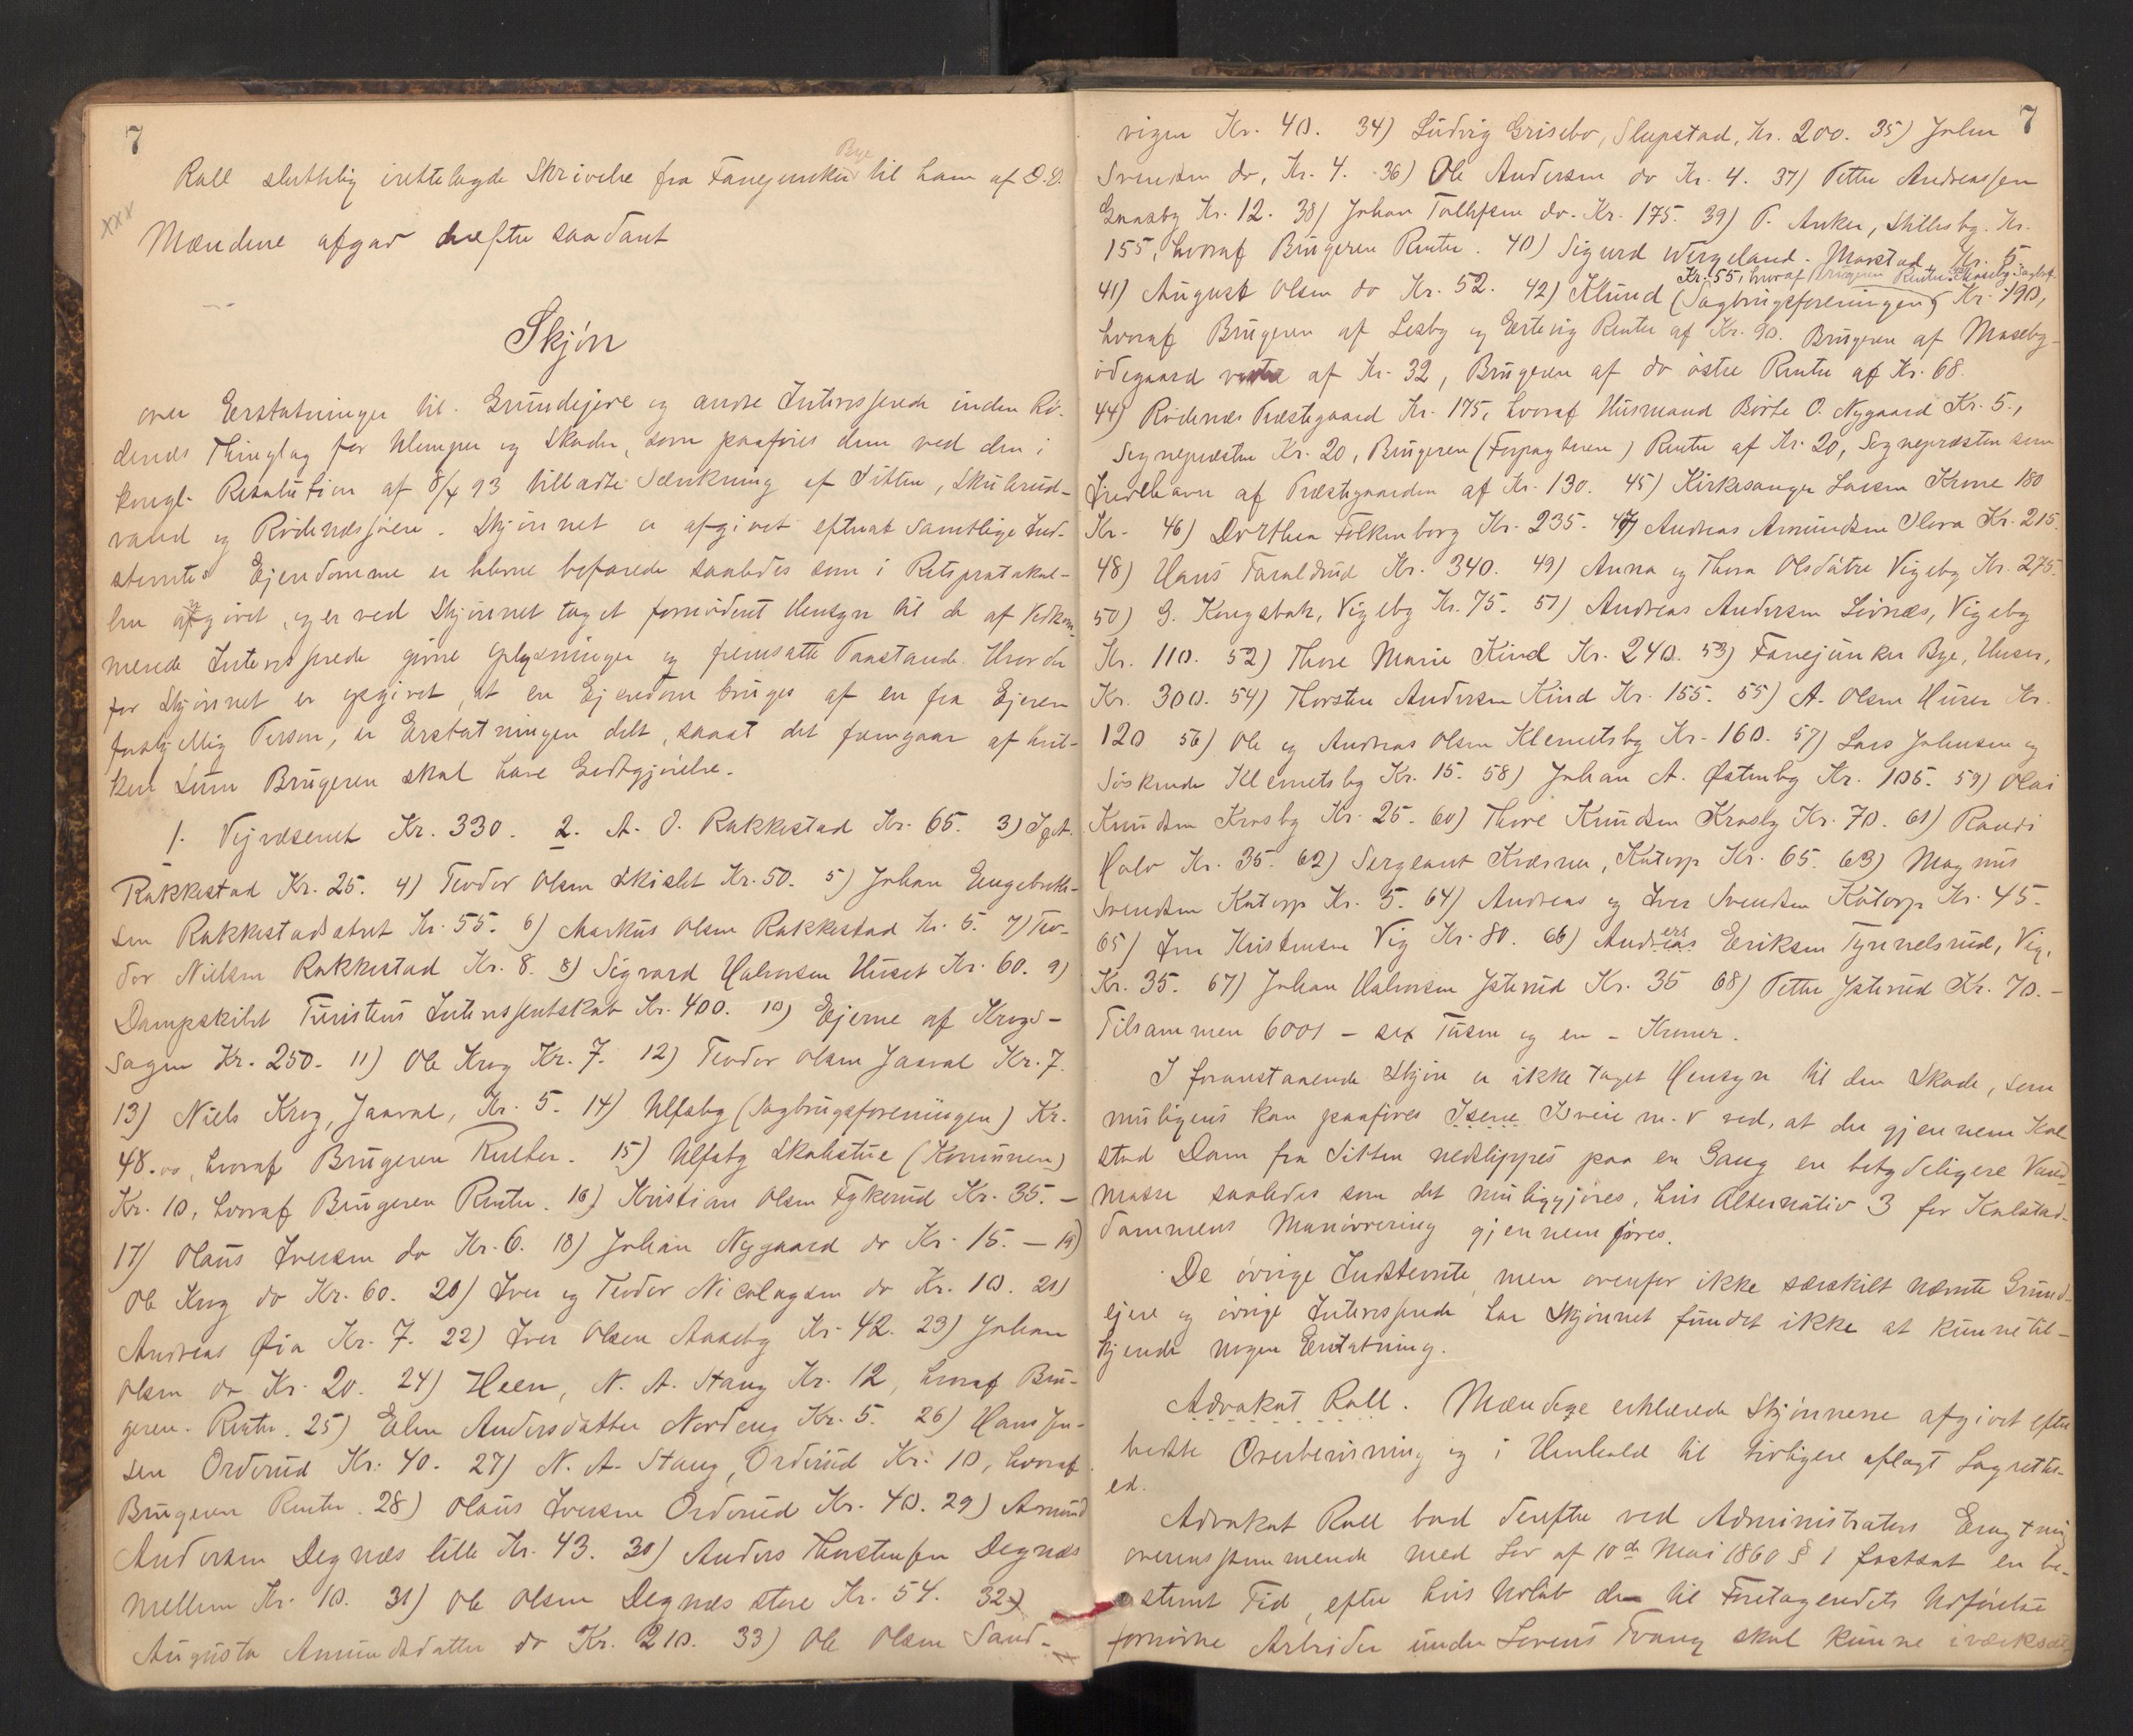 7
Bye
Roll sluttelig irettelagde Skrivelse fra Fanejunker til ham af D.D.
xxx
Mændene afgav derefter saadant
Skjön
over Erstatninger til Grundejere og andre Interesserede inden Rö-
denæs Thinglag for Ulemper og Skader, som paaföres dem ved den i
kongl. Resolution af 8/4 93 tilladte Sænkning af Sitten, Skulerud-
vand og Rödenæssjöen. Skjönnet er afgivet efterat samtlige Ind-
stevntes Ejendomme er blevne befarede saaledes som i Retsprotokol-
len afgivet, og er ved Skjönnet taget fornödent Hensyn til de af Vedkom-
mende Interesserede givne Oplysninger og fremsatte Paastande. Hvor der
for Skjönnet er opgivet, at en Ejendom bruges af en fra Ejeren
forskjellig Person, er Erstatningen delt, saaat det fremgaar af hvil-
ken Sum Brugeren skal have Godtgjörelse.
1. Vejvæsenet Kr. 330. 2. A. O. Rakkestad Kr. 65. 3) Sgt.
Rakkestad Kr. 25. 4) Teodor Olsen Skislet Kr. 50. 5) Johan Engebret-
sen Rakkestadsætret Kr. 55. 6) Markus Olsen Rakkestad Kr. 5. 7) Teo-
dor Nielsen Rakkestad Kr. 8. 8) Sigvard Halvorsen Huset Kr. 60. 9)
Dampskibet Turistens Interessentskab Kr. 400. 10) Ejerne af Krogs-
sagen Kr. 250. 11) Ole Krog Kr. 7. 12) Teodor Olsen Jaaval Kr. 7.
13) Niels Krog, Jaaval, Kr. 5. 14) Ulfsby (Sagbrugsforeningen) Kr.
48.00, hvoraf Brugeren Renter. 15) Ulfsby Skolestue (Komunen)
Kr. 10, hvoraf Brugeren Renter. 16) Kristian Olsen Fykerud Kr. 35. —
17) Olaus Iversen do Kr. 6. 18) Johan Nygaard do Kr. 15. — 19)
Ole Krog do Kr. 60. 20) Iver og Teodor Nicolaysen do Kr. 10. 21)
Andreas Øia Kr. 7. 22) Iver Olsen Aaseby Kr. 42. 23) Johan
Olsen do Kr. 20. 24) Heen, N. A. Stang Kr. 12, hvoraf Bru-
geren Renter. 25) Elen Andersdatter Nordeng Kr. 5. 26) Hans Jen-
sen Orderud Kr. 40. 27) N. A. Stang, Orderud Kr. 10, hvoraf
Brugeren Renter. 28) Olaus Iversen Orderud Kr. 40. 29) Amund
Andersen Degnæs lille Kr. 43. 30) Anders Thorstensen Degnæs
mellem Kr. 10. 31) Ole Olsen Degnæs store Kr. 54. 32)
Augusta Amundsdatter do Kr. 210. 33) Ole Olsen Sand-
7
vigen Kr. 40. 34) Ludvig Grisebo, Slupstad, Kr. 200. 35) Johan
Svendsen do, Kr. 4. 36) Ole Andersen do Kr. 4. 37) Petter Andreassen
Gaasby Kr. 12. 38) Johan Tollefsen do. Kr. 175. 39) P. Anker, Skillesby. Kr.
155, hvoraf Brugeren Renter. 40) Sigurd Wergeland. Morstad Kr. 5
Kr. 55, hvoraf Brugeren Renter. Maseby Sagbrf.
41) August Olsen do Kr. 52. 42) Klund (Sagbrugsforeningen) Kr. 190,
hvoraf Brugeren af Lesby og Ertevig Renter af Kr. 90. Brugeren af Maseby-
ödegaard vestre af Kr. 32, Brugeren af do östre Renter af Kr. 68.
44) Rödenæs Præstegaard Kr. 175, hvoraf Husmand Börte O. Nygaard Kr. 5.,
Sognepræsten Kr. 20, Brugeren (Forpagteren) Renter af Kr. 20, Sognepræsten som
Indehaver af Præstegaarden af Kr. 130. 45) Kirkesanger Lassen Krone 180
Kr. 46) Dorthea Folkenborg Kr. 235. 47) Andreas Amundsen Slora Kr. 215.
48) Hans Taraldrud Kr. 340. 49) Anna og Thora Olsdatre Vigeby Kr. 275.
50) G. Kongsbak, Vigeby Kr. 75. 51) Andreas Andersen Livnæs, Vigeby
Kr. 110. 52) Thore Marie Kind Kr. 240. 53) Fanejunker Bye, Huser,
Kr. 300. 54) Thorsten Andersen Kind Kr. 155. 55) A. Olsen Huser Kr.
120 56) Ole og Andreas Olsen Klemetsby Kr. 160. 57) Lars Johnsen og
Söskende Klemetsby Kr. 15. 58) Johan A. Østenby Kr. 105. 59) Olai
Knudsen Krosby Kr. 25. 60) Thore Knudsen Krosby Kr. 70. 61) Randi
Holo Kr. 35. 62) Sergeant Kværner, Kåtorp Kr. 65. 63) Magnus
Svendsen Kåtorp Kr. 5. 64) Andreas og Iver Svendsen Kåtorp Kr. 45.
65) Jens Kristensen Vig Kr. 80. 66) Anders Eriksen Tynnelsrud, Vig,
Kr. 35. 67) Johan Halvorsen Jsterud Kr. 35 68) Petter Jsterud Kr. 70. —
Tilsammen 6001 – sex Tusen og en – Kroner.
I foranstaaende Skjön er ikke taget Hensyn til den Skade, som
muligens kan paaföres Isene Isveie m. v ved, at der gjennem Kol-
stad Dam fra Sitten nedslippes paa en Gang en betydeligere Vand-
masse saaledes som det muliggjöres, hvis Alternativ 3 for Kolstad-
dammens Manövrering gjennemföres.
De övrige Indstevnte, men ovenfor ikke særskilt nævnte Grund-
ejere og övrige Interesserede har Skjönnet fundet ikke at kunne til-
kjende nogen Erstatning.
Advokat Roll. Mændene erklærede Skjönnene afgivet efter
bedste Overbevisning og i Henhold til tidligere aflagt Lagrettes-
ed.
Advokat Roll bad derefter ved Administrators
overensstemmende med Lov af 10de Mai 1860 § 1 fastsat en be-
stemt Tid, efter hvis Udlöb de til Foretagendets Udförelse
fornödne Arbeider under Lovens Tvang skal kunne iværksæt